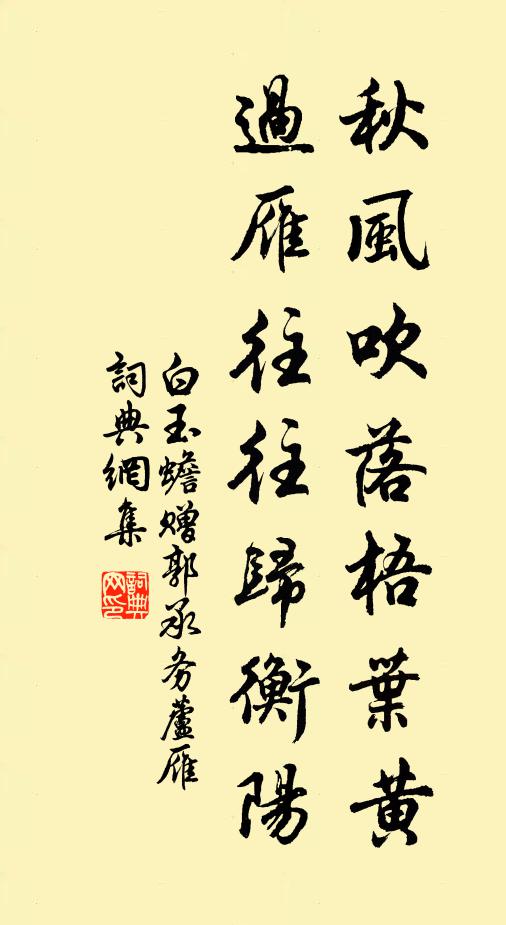 秋風吹落梧葉黃
過雁往往歸衡陽
白玉蟾贈郭承务蘆雁
詞典網集
詞典网印